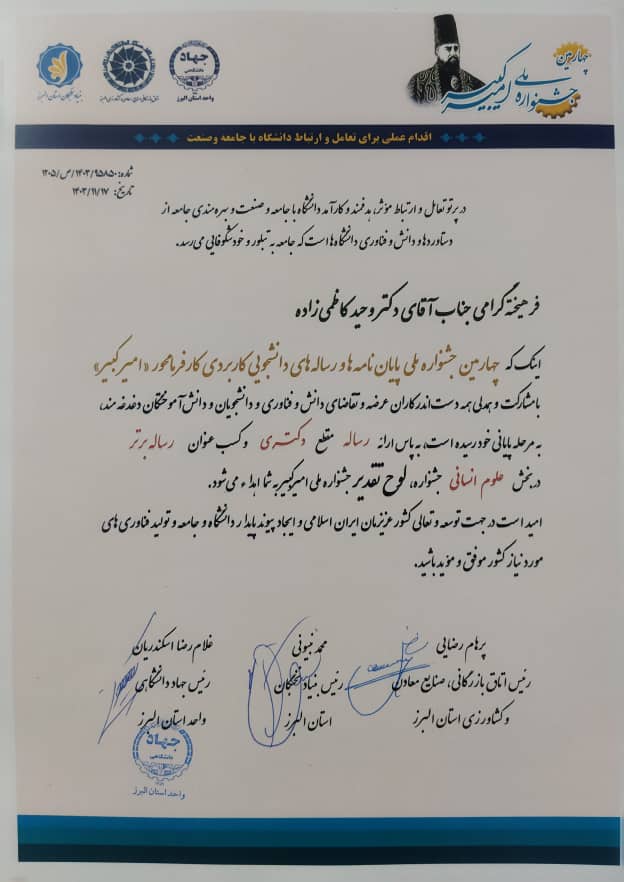 چهارمین
جشنواره ملی
امیرکبیر
جهاد
دانشگاهی
واحد استان البرز
بنیاد نخبگان استان البرز
اقدام عملی برای تعامل و ارتباط دانشگاه با جامعه وصنعت
شماره: ۱۴۰۳/۹۵۸۵۰/ص/۱۲۰۵
تاریخ: ۱۴۰۳/۱۱/۱۷
در پرتو تعامل و ارتباط مؤثر، هدفمند و کارآمد دانشگاه با جامعه و صنعت و بهره مندی جامعه از
دستاوردها و دانش و فناوری دانشگاه ها است که جامعه به تبلور و خودشکوفایی می رسد.
فرهیخته گرامی جناب آقای دکتر وحید کاظمی زاده
اینک که چهارمین جشنواره ملی پایان نامه ها و رساله های دانشجویی کاربردی کارفرمامحور «امیرکبیر»
با مشارکت و همدلی همه دست اندرکاران عرضه و تقاضای دانش و فناوری و دانشجویان و دانش آموختگان دغدغه مند،
به مرحله پایانی خود رسیده است، به پاس ارائه رساله مقطع دکتری و کسب عنوان رساله برتر
در بخش علوم انسانی جشنواره، لوح تقدیر جشنواره ملی امیرکبیر به شما اهداء می شود.
امید است در جهت توسعه و تعالی کشور عزیزمان ایران اسلامی و ایجاد پیوند پایدار دانشگاه و جامعه و تولید فناوری های
مورد نیاز کشور موفق و مؤید باشید.
پرهام رضایی
رئیس اتاق بازرگانی، صنایع معادن
و کشاورزی استان البرز
محمد نبیونی
رئیس بنیاد نخبگان
استان البرز
غلامرضا اسکندریان
رئیس جهاد دانشگاهی
واحد استان البرز
جهاد
دانشگاهی
واحد استان البرز